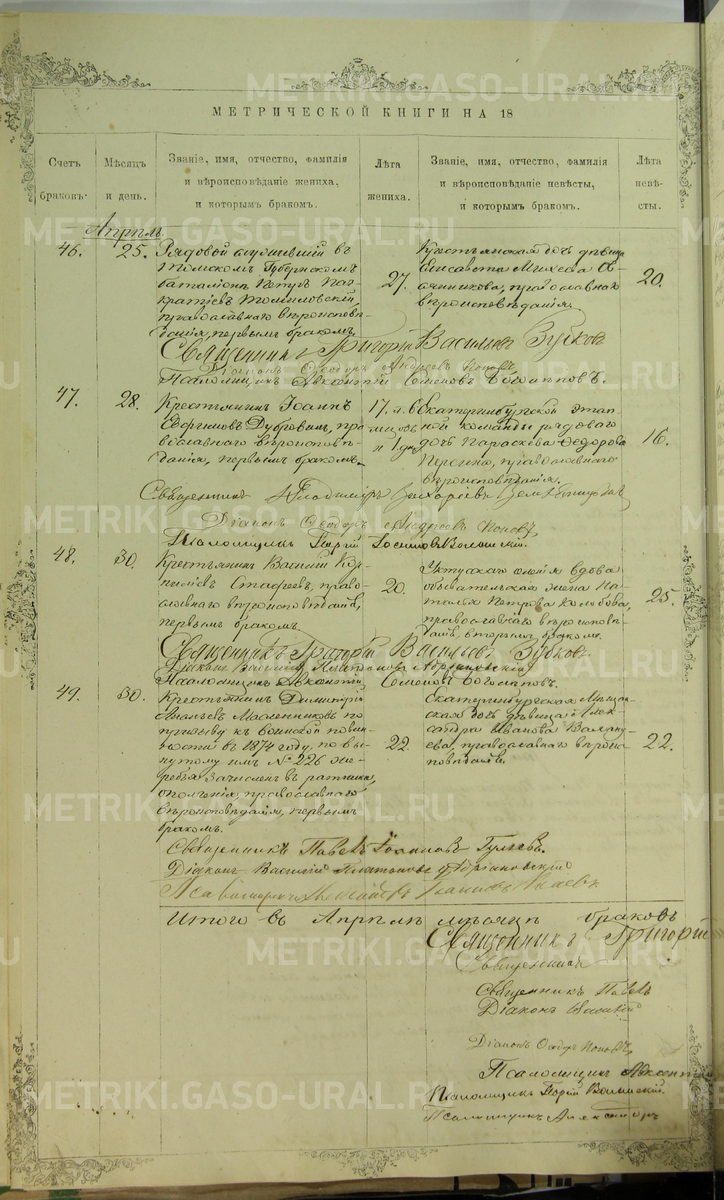 МЕТРИЧЕСКОЙ КНИГИ НА 18
Счетъ браковъ.
Мѣсяцъ и день.
Званіе, имя, отчество, фамилія и вѣроисповѣданіе жениха, и которымъ бракомъ.
Лѣта жениха.
Званіе, имя, отчество, фамилія и вѣроисповѣданіе невѣсты, и которымъ бракомъ.
Лѣта невѣсты.
Апрѣль.
46. 25.
Рядовой служившій въ
Томскомъ Губернскомъ
баталіонѣ Петръ Пан-
кратіевъ Томиловскій,
православнаго вѣроисповѣ-
данія, первымъ бракомъ.
27.
Крестьянская дочь дѣвица
Елисавета Михеева Ов-
чинникова, православнаго
вѣроисповѣданія.
20.
Священникъ Григорій Васильевъ Зубковъ
Діаконъ Ѳеодоръ Андреевъ Поповъ
Псаломщикъ Авксентій Семеновъ Богомоловъ.
47. 28.
Крестьянинъ Іоаннъ
Евфимовъ Дубровинъ, пра-
вославнаго вѣроисповѣ-
данія, первымъ бракомъ.
17. л.
Екатеринбургской этап-
ной команды рядоваго
дочь Параскева Ѳедорова
православнаго
вѣроисповѣданія.
16.
Священникъ Владиміръ Захаріевъ
Діаконъ Ѳеодоръ Андреевъ Поповъ
Псаломщикъ Георгій Волынскій.
48. 30.
Крестьянинъ Василій Кор-
ниліевъ православнаго вѣроисповѣданія,
первымъ бракомъ.
20.
Уктусскаго селенія вдова
обывательская жена На-
талья Петрова
православнаго вѣроисповѣ-
данія, вторымъ бракомъ.
25.
Священникъ Григорій Васильевъ Зубковъ.
Діаконъ Василій Платоновъ Адріановскій
Псаломщикъ Авксентій Семеновъ Богомоловъ.
49. 30.
Крестьянинъ Димитрій
Масленниковъ по
призыву къ воинской повин-
ности въ 1874 году, по вы-
нутому имъ № 226 же-
ребья зачисленъ въ ратники
ополченія, православнаго
вѣроисповѣданія, первымъ
бракомъ.
22.
Екатеринбургская Мѣщан-
ская дочь дѣвица Алек-
сандра Иванова
православнаго вѣроис-
повѣданія.
22.
Священникъ Павелъ Іоанновъ Гуляевъ.
Діаконъ Василій Платоновъ Адріановскій
Псаломщикъ
Итого въ Апрѣлѣ мѣсяцѣ браковъ
Священникъ Григорій
Священникъ
Священникъ Павелъ
Діаконъ Василій
Діаконъ Ѳеодоръ Поповъ
Псаломщикъ Авксентій
Псаломщикъ Георгій Волынскій.
Псаломщикъ Александръ
METRIKI.GASO-URAL.RU